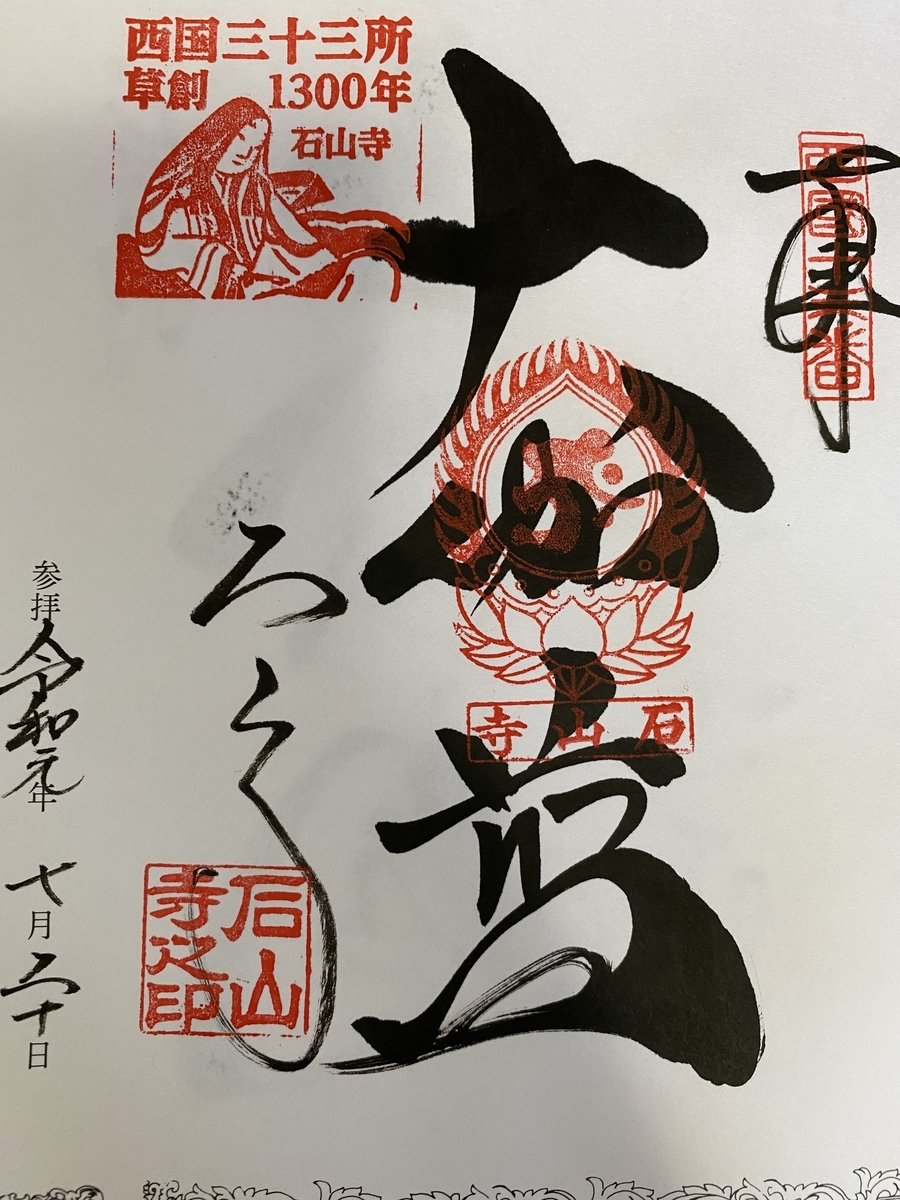 奉拝
西國十三番
大伽藍
石山寺
西国三十三所
草創 1300年
石山寺
石山寺之印
参拝 令和元年 七月二十日